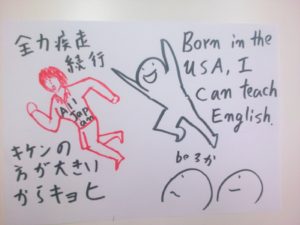 全力疾走
続行
All
Jap
an
キケンの
方が大きい
からキョヒ
Born in the
USA, I
Can teach
English.